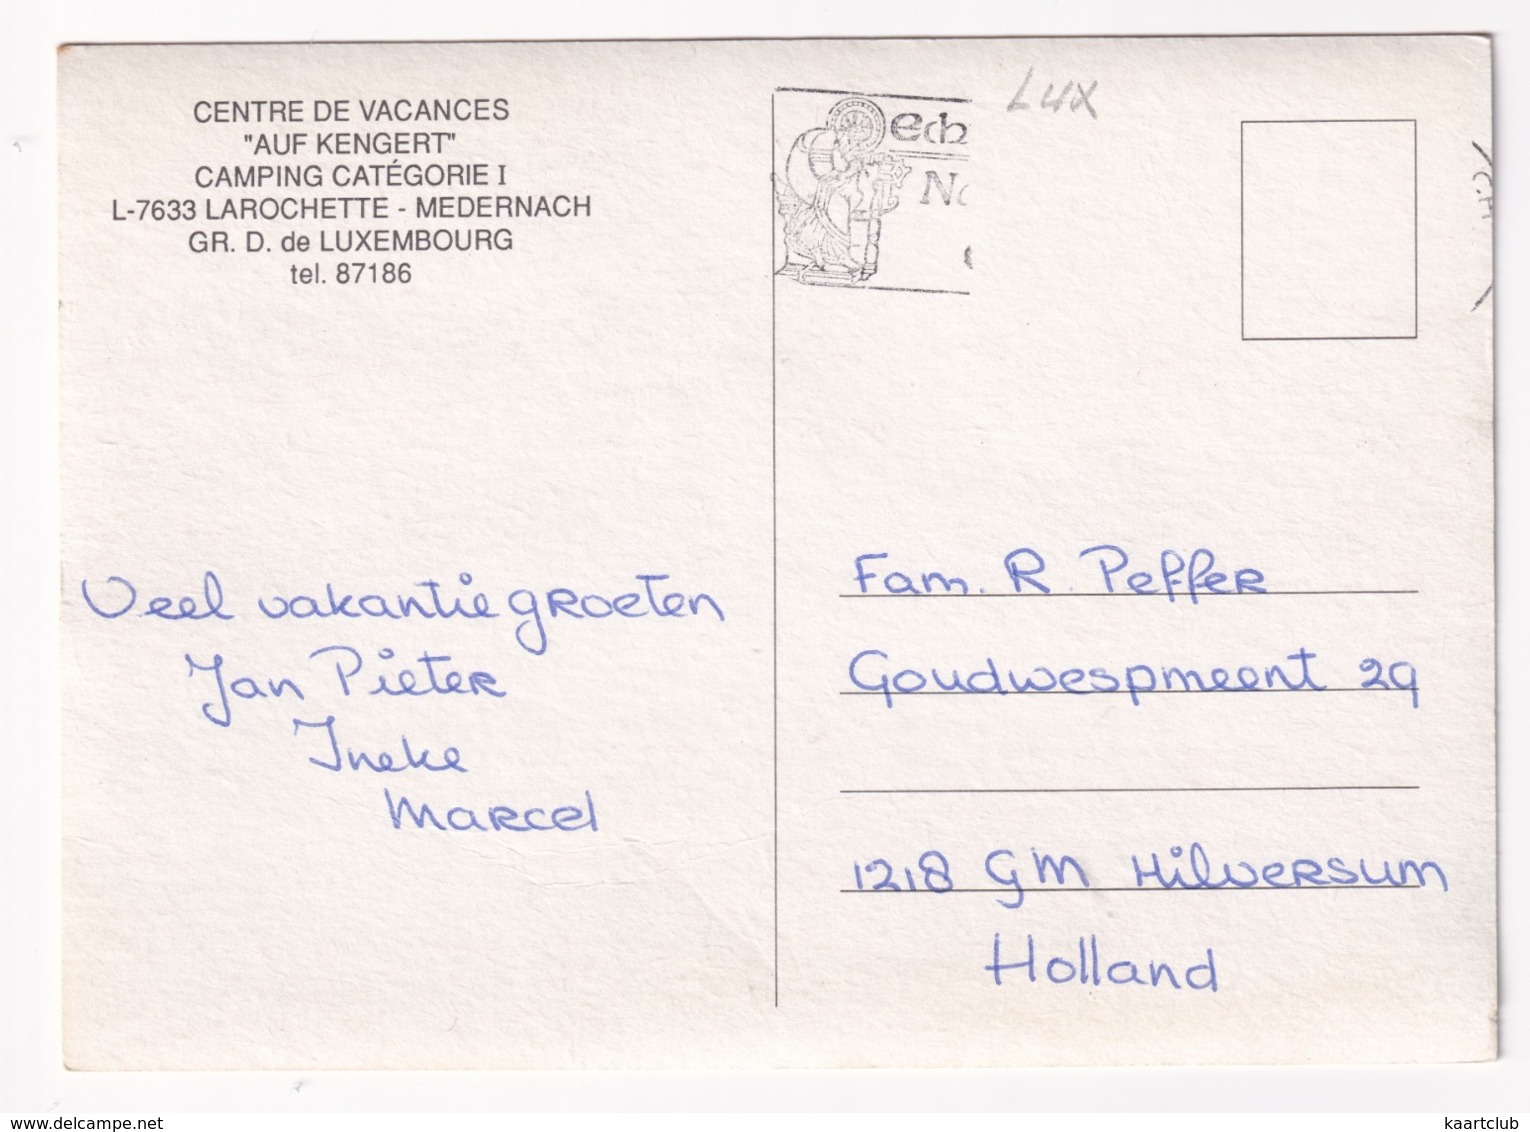 CENTRE DE VACANCES
"AUF KENGERT"
CAMPING CATÉGORIE I
L-7633 LAROCHETTE - MEDERNACH
GR. D. de LUXEMBOURG
tel. 87186
LUX
Veel vakantie groeten
Jan Pieter
Ineke
Marcel
Fam. R. Peffer
Goudwespmeent 29
1218 GM Hilversum
Holland
www.delcampe.net
kaartclub